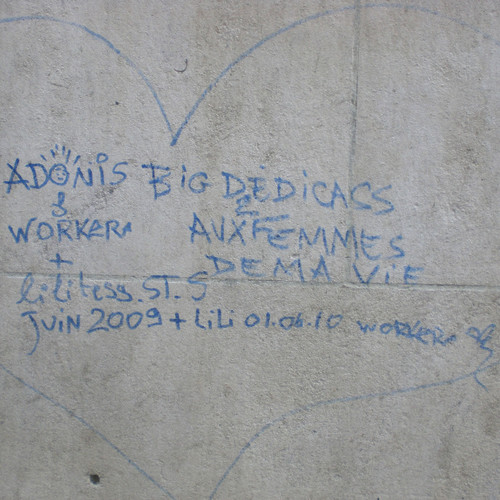 ADONIS BIG DEDICACS
&
WORKER AUX FEMMES
+ DE MA VIE
lilitess. ST. S
JUIN 2009 + LiLi 01.06.10 WORKER